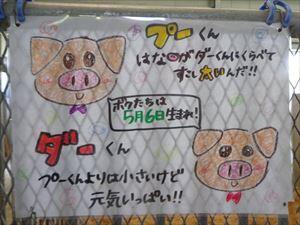 プーくん
はながダーくんにくらべて
すこし太いんだ!!
ボクたちは
5月6日生まれ!
ダーくん
プーくんよりは小さいけど
元気いっぱい!!